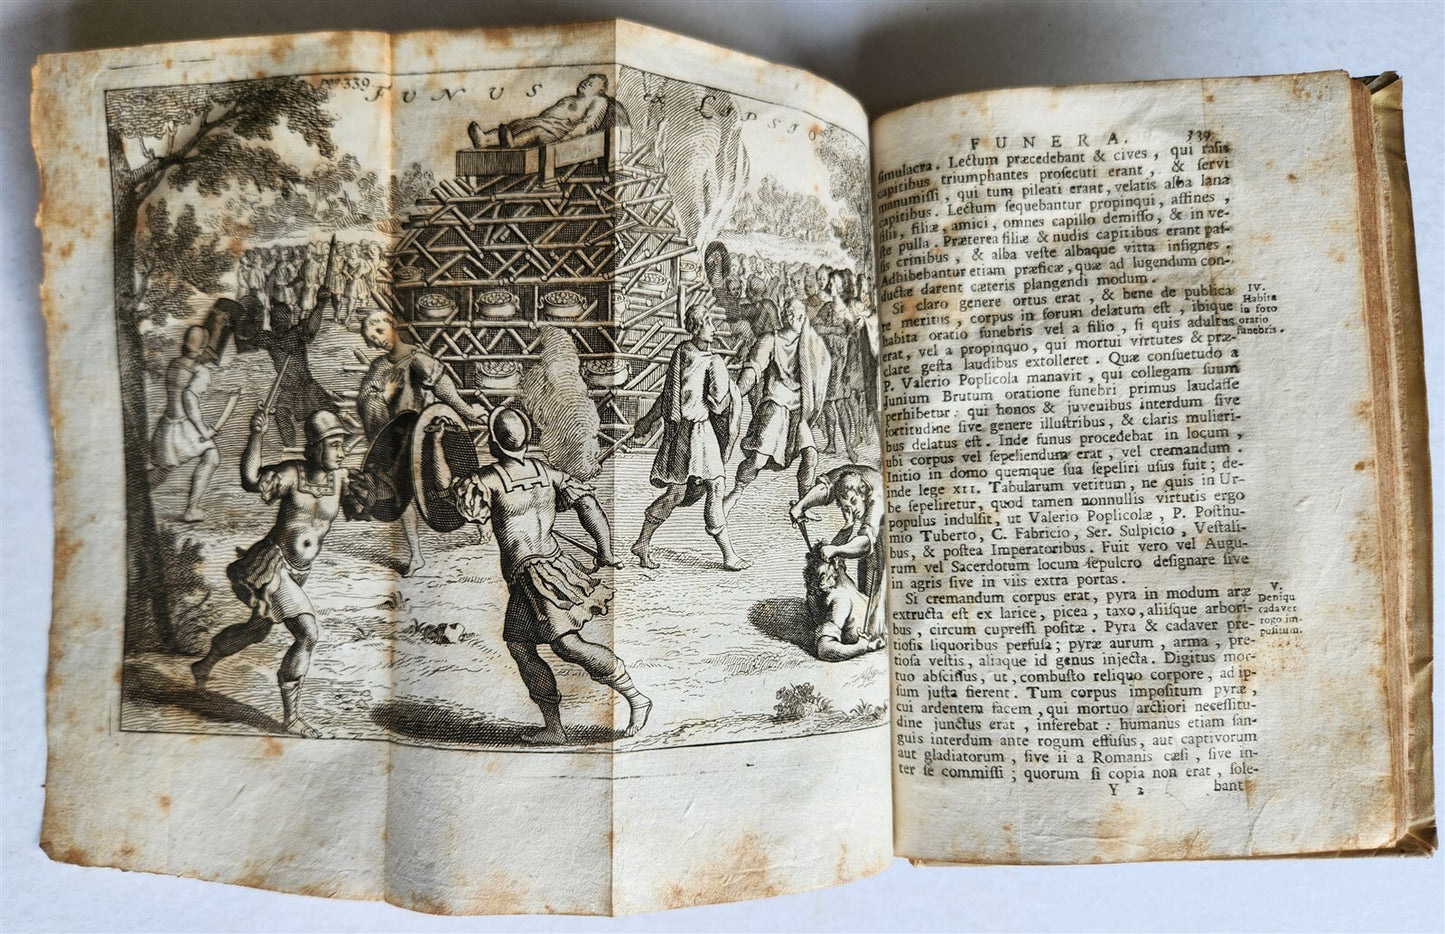 pag 339
FUNUS ex LIPSIO
FUNERA. 339
ſimulacra. Lectum præcedebant & cives, qui raſis
capitibus triumphantes proſecuti erant, & ſervi
manumiſſi, qui tum pileati erant, velatis alba lana
capitibus. Lectum ſequebantur propinqui, affines,
filii, filiæ, amici, omnes capillo demiſſo, & in ve-
ſte pulla. Præterea filiæ & nudis capitibus erant paſ-
ſis crinibus, & alba veſte albaque vitta inſignes.
Adhibebantur etiam præficæ, quæ ad lugendum con-
ductæ darent cæteris plangendi modum.
Si claro genere ortus erat, & bene de publica
re meritus, corpus in forum delatum eſt, ibique
habita oratio funebris vel a filio, ſi quis adultus
erat, vel a propinquo, qui mortui virtutes & præ-
clare geſta laudibus extolleret. Quæ conſuetudo a
P. Valerio Poplicola manavit, qui collegam ſuum
Junium Brutum oratione funebri primus laudaſſe
perhibetur: qui honos & juvenibus interdum ſive
fortitudine ſive genere illuſtribus, & claris mulieri-
bus delatus eſt. Inde funus procedebat in locum,
ubi corpus vel ſepeliendum erat, vel cremandum.
Initio in domo quemque ſua ſepeliri uſus fuit; de-
inde lege XII. Tabularum vetitum, ne quis in Ur-
be ſepeliretur, quod tamen nonnullis virtutis ergo
populus indulſit, ut Valerio Poplicolæ, P. Poſthu-
mio Tuberto, C. Fabricio, Ser. Sulpicio, Veſtali-
bus, & poſtea Imperatoribus. Fuit vero vel Augu-
rum vel Sacerdotum locum ſepulcro deſignare ſive
in agris ſive in viis extra portas.
Si cremandum corpus erat, pyra in modum aræ
extructa eſt ex larice, picea, taxo, aliiſque arbori-
bus, circum cupreſſi poſitæ. Pyra & cadaver pre-
tioſis liquoribus perfuſa; pyræ aurum, arma, pre-
tioſa veſtis, aliaque id genus injecta. Digitus mor-
tuo abſciſſus, ut, combuſto reliquo corpore, ad ip-
ſum juſta fierent. Tum corpus impoſitum pyræ,
cui ardentem facem, qui mortuo arctiori neceſſitu-
dine junctus erat, inferebat: humanus etiam ſan-
guis interdum ante rogum effuſus, aut captivorum
aut gladiatorum, ſive ii a Romanis cæſi, ſive in-
ter ſe commiſſi; quorum ſi copia non erat, ſole-
Y 2 bant
IV.
Habita
in foro
oratio
funebris.
V.
Deniqu
cadaver
rogo im-
poſitum.